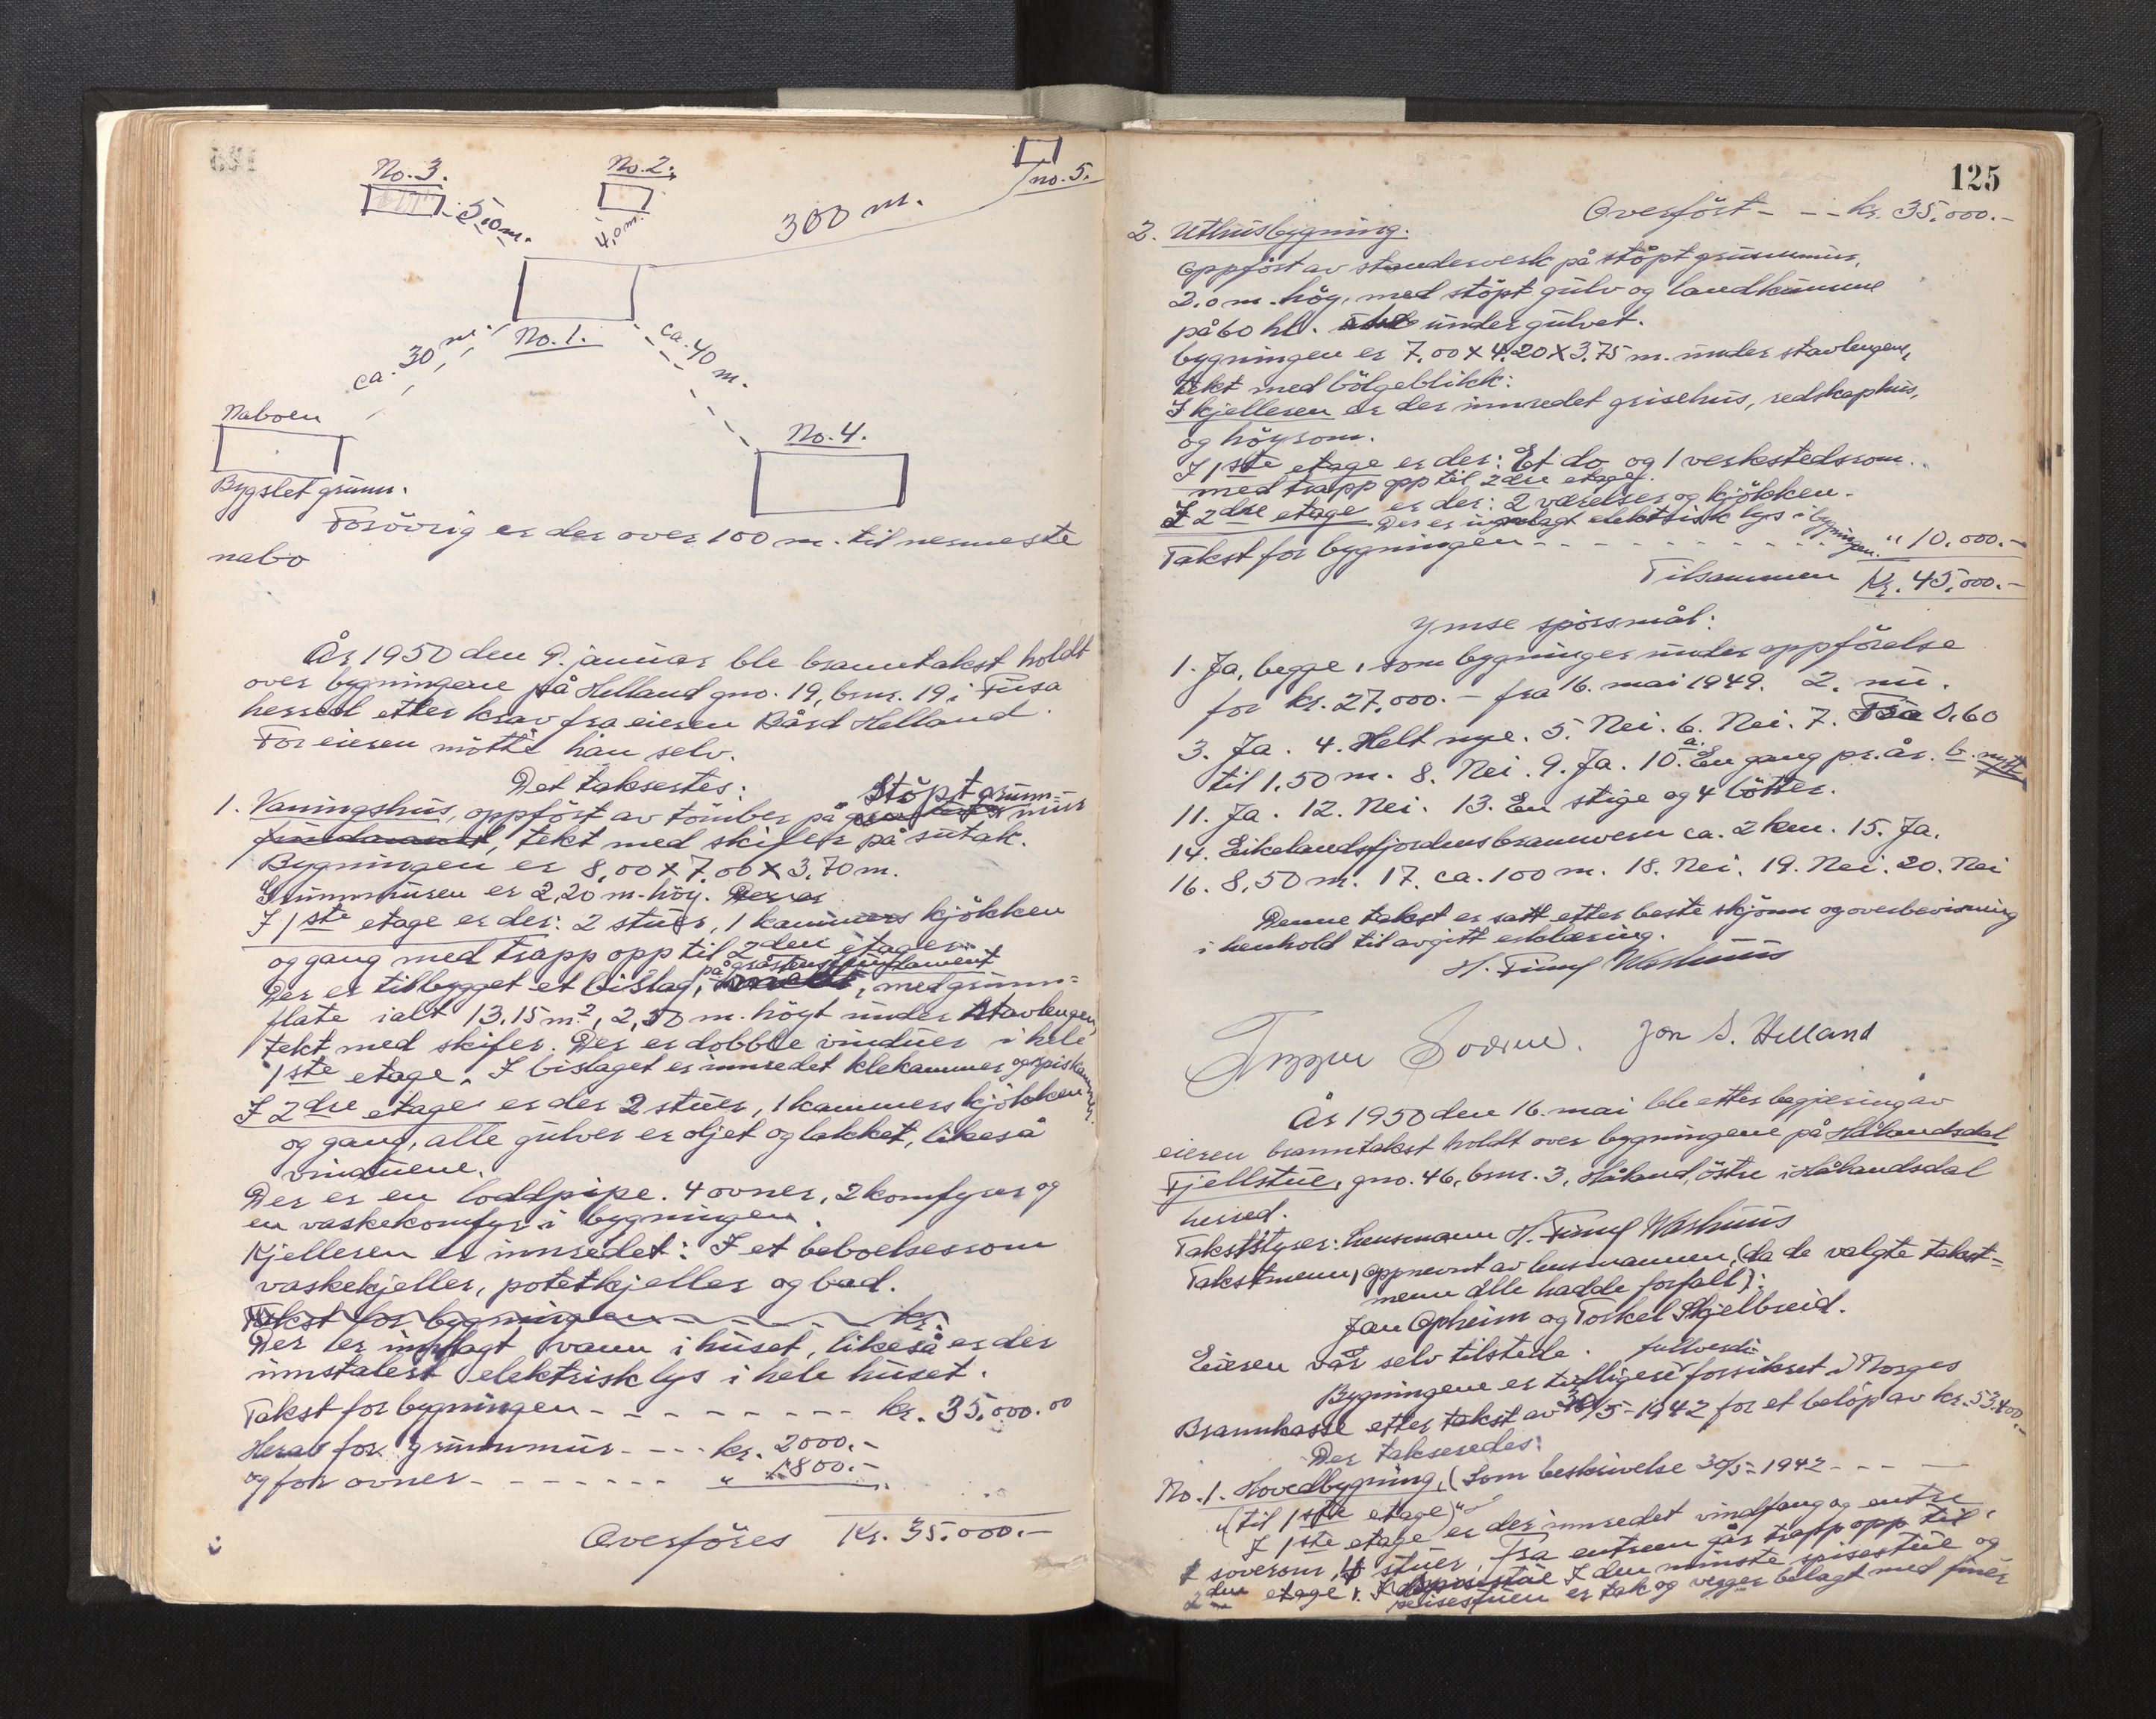 No. 3.
No. 2.
no. 5.
5,0 m.
4,0 m.
300 m.
No. 1.
ca. 30 m.
ca. 40 m.
Naboen
No. 4.
Bygslet grunn.
Forövrig er der over 100 m. til nermeste
nabo
År 1950 den 9. januar ble branntakst holdt
over bygningene på Helland gno. 19, brnr. 19 i Fusa
herred etter krav fra eieren Bård Helland.
For eieren mötte han selv.
Det taksertes:
1. Vaningshus, oppfört av tömber på Stöpt grunn=
mur
fundament, tekt med skifer på sutak.
Bygningen er 8,00 X 7,00 X 3,70 m.
Grunnmuren er 2,20 m. höy. Der er
I 1ste etage er der: 2 stuer, 1 kammers kjökken
og gang med trapp opp til 2den etage.
på gråstensfundament
Der er tilbygget et bislag, med grunn=
flate ialt 13,15 m², 2,50 m. höyt under stavlengen,
tekt med skifer. Der er dobble vinduer i hele
1ste etage. I bislaget er innredet klekammer og spiskammer.
I 2dre etage er der 2 stuer, 1 kammers kjökken
og gang, alle gulver er oljet og lakket, likeså
vinduene.
Der er en loddpipe. 4 ovner, 2 komfyrer og
en vaskekomfyr i bygningen.
Kjelleren er innredet: I et beboelsesrom
vaskekjeller, potetkjeller og bad.
Takst for bygningen - - - - kr.
Der er innlagt vann i huset, likeså er der
innstalert elektrisk lys i hele huset.
Takst for bygningen - - - - - - - - - kr. 35.000.00
Herav for grunnmur - - - - kr. 2000.-
og for ovner - - - - - - - " 1800.-
Overföres Kr. 35.000.-
125
Overfört - - - kr. 35.000.-
2. Uthusbygning.
Oppfört av standerverk på stöpt grunnmur,
2.0 m. höy, med stöpt gulv og landkumme
på 60 hl. under gulvet.
bygningen er 7,00 X 4.20 X 3.75 m. under stavlengen,
tekt med bölgeblikk:
I kjelleren er der innredet grisehus, redskaphus,
og höyrom.
I 1ste etage er der: Et do og 1 verkstedsrom.
med trapp opp til 2dre etage.
I 2dre etage er der: 2 værelser og kjökken.
Der er innlagt elektrisk lys i bygningen.
Takst for bygningen - - - - - - - - - " 10.000.-
Tilsammen Kr. 45.000.-
Ymse spörsmål:
1. Ja, begge, som bygninger under oppförelse
for kr. 27.000.- fra 16. mai 1949. 2. nu.
3. Ja. 4. Helt nye. 5. Nei. 6. Nei. 7. Fra 0,60
til 1,50 m. 8. Nei. 9. Ja. 10. a. En gang pr. år. b.
11. Ja. 12. Nei. 13. En stige og 4 bötter.
14. Eikelandsfjordens brannvern ca. 2 km. 15. Ja.
16. 8,50 m. 17. ca. 100 m. 18. Nei. 19. Nei. 20. Nei
Denne takst er satt efter beste skjönn og overbevisning
i henhold til avgitt erklæring.
H. Finnf Washuus
Jon S. Helland
År 1950 den 16. mai ble etter begjæring av
eieren branntakst holdt over bygningene på Hålandsdal
Fjellstue, gno. 46, brnr. 3, Håland, östre i Hålandsdal
herred.
Takststyrer: Lensmann H. Finnf Washuus
Takstmenn, oppnevnt av lensmannen, (da de valgte takst=
menn alle hadde forfall):
Jan Opheim og Torkel Skjelbreid.
Eieren var selv tilstede.
fullverdi
Bygningene er tidligere forsikret i Norges
Brannkasse etter takst av 30/5-1942 for et belöp av kr. 53.400.-
Der takseredes:
No. 1. Hovedbygning, (Som beskrivelse 30/5-1942 - - -
(til 1ste etage)"
I 1ste etage er der innredet vindfang og entre
soverom, stuer, Fra entreen går trapp opp til
2den etage. I den minste spisestue og
peisestuen er tak og vegger belagt med finér